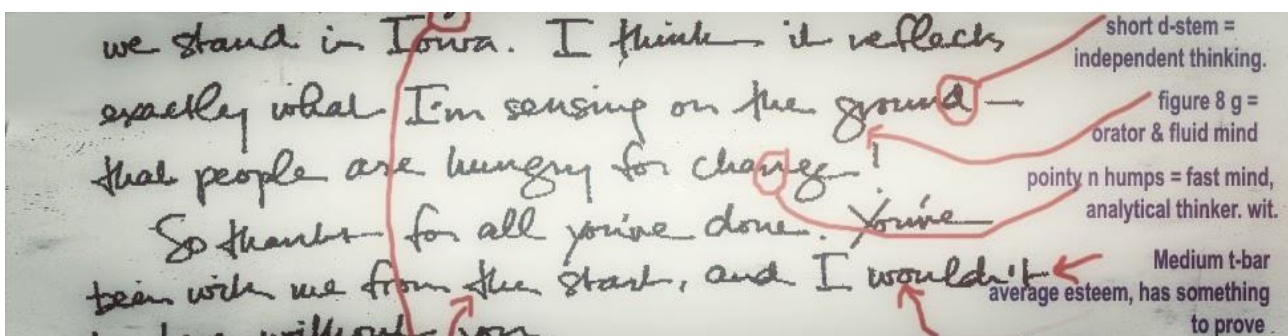 we stand in Iowa. I think it reflects
exactly what I'm sensing on the ground —
that people are hungry for change!
So thanks for all you've done. You've
been with me from the start, and I wouldn't
without you
short d-stem =
independent thinking.
figure 8 g =
orator & fluid mind
pointy n humps = fast mind,
analytical thinker. wit.
Medium t-bar
average esteem, has something
to prove